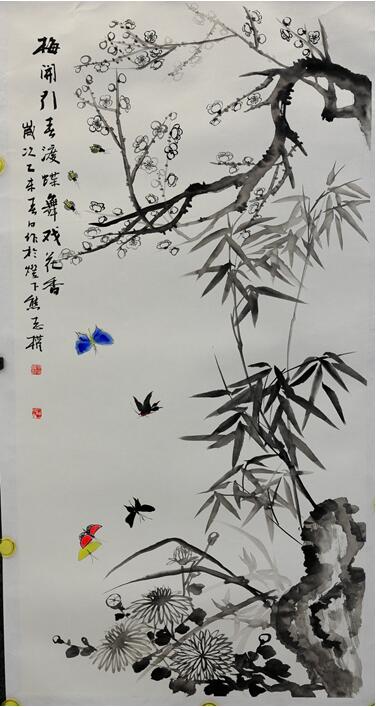 梅開引春漫蝶舞戏花香
歲次乙未春日作於燈下熊志樸